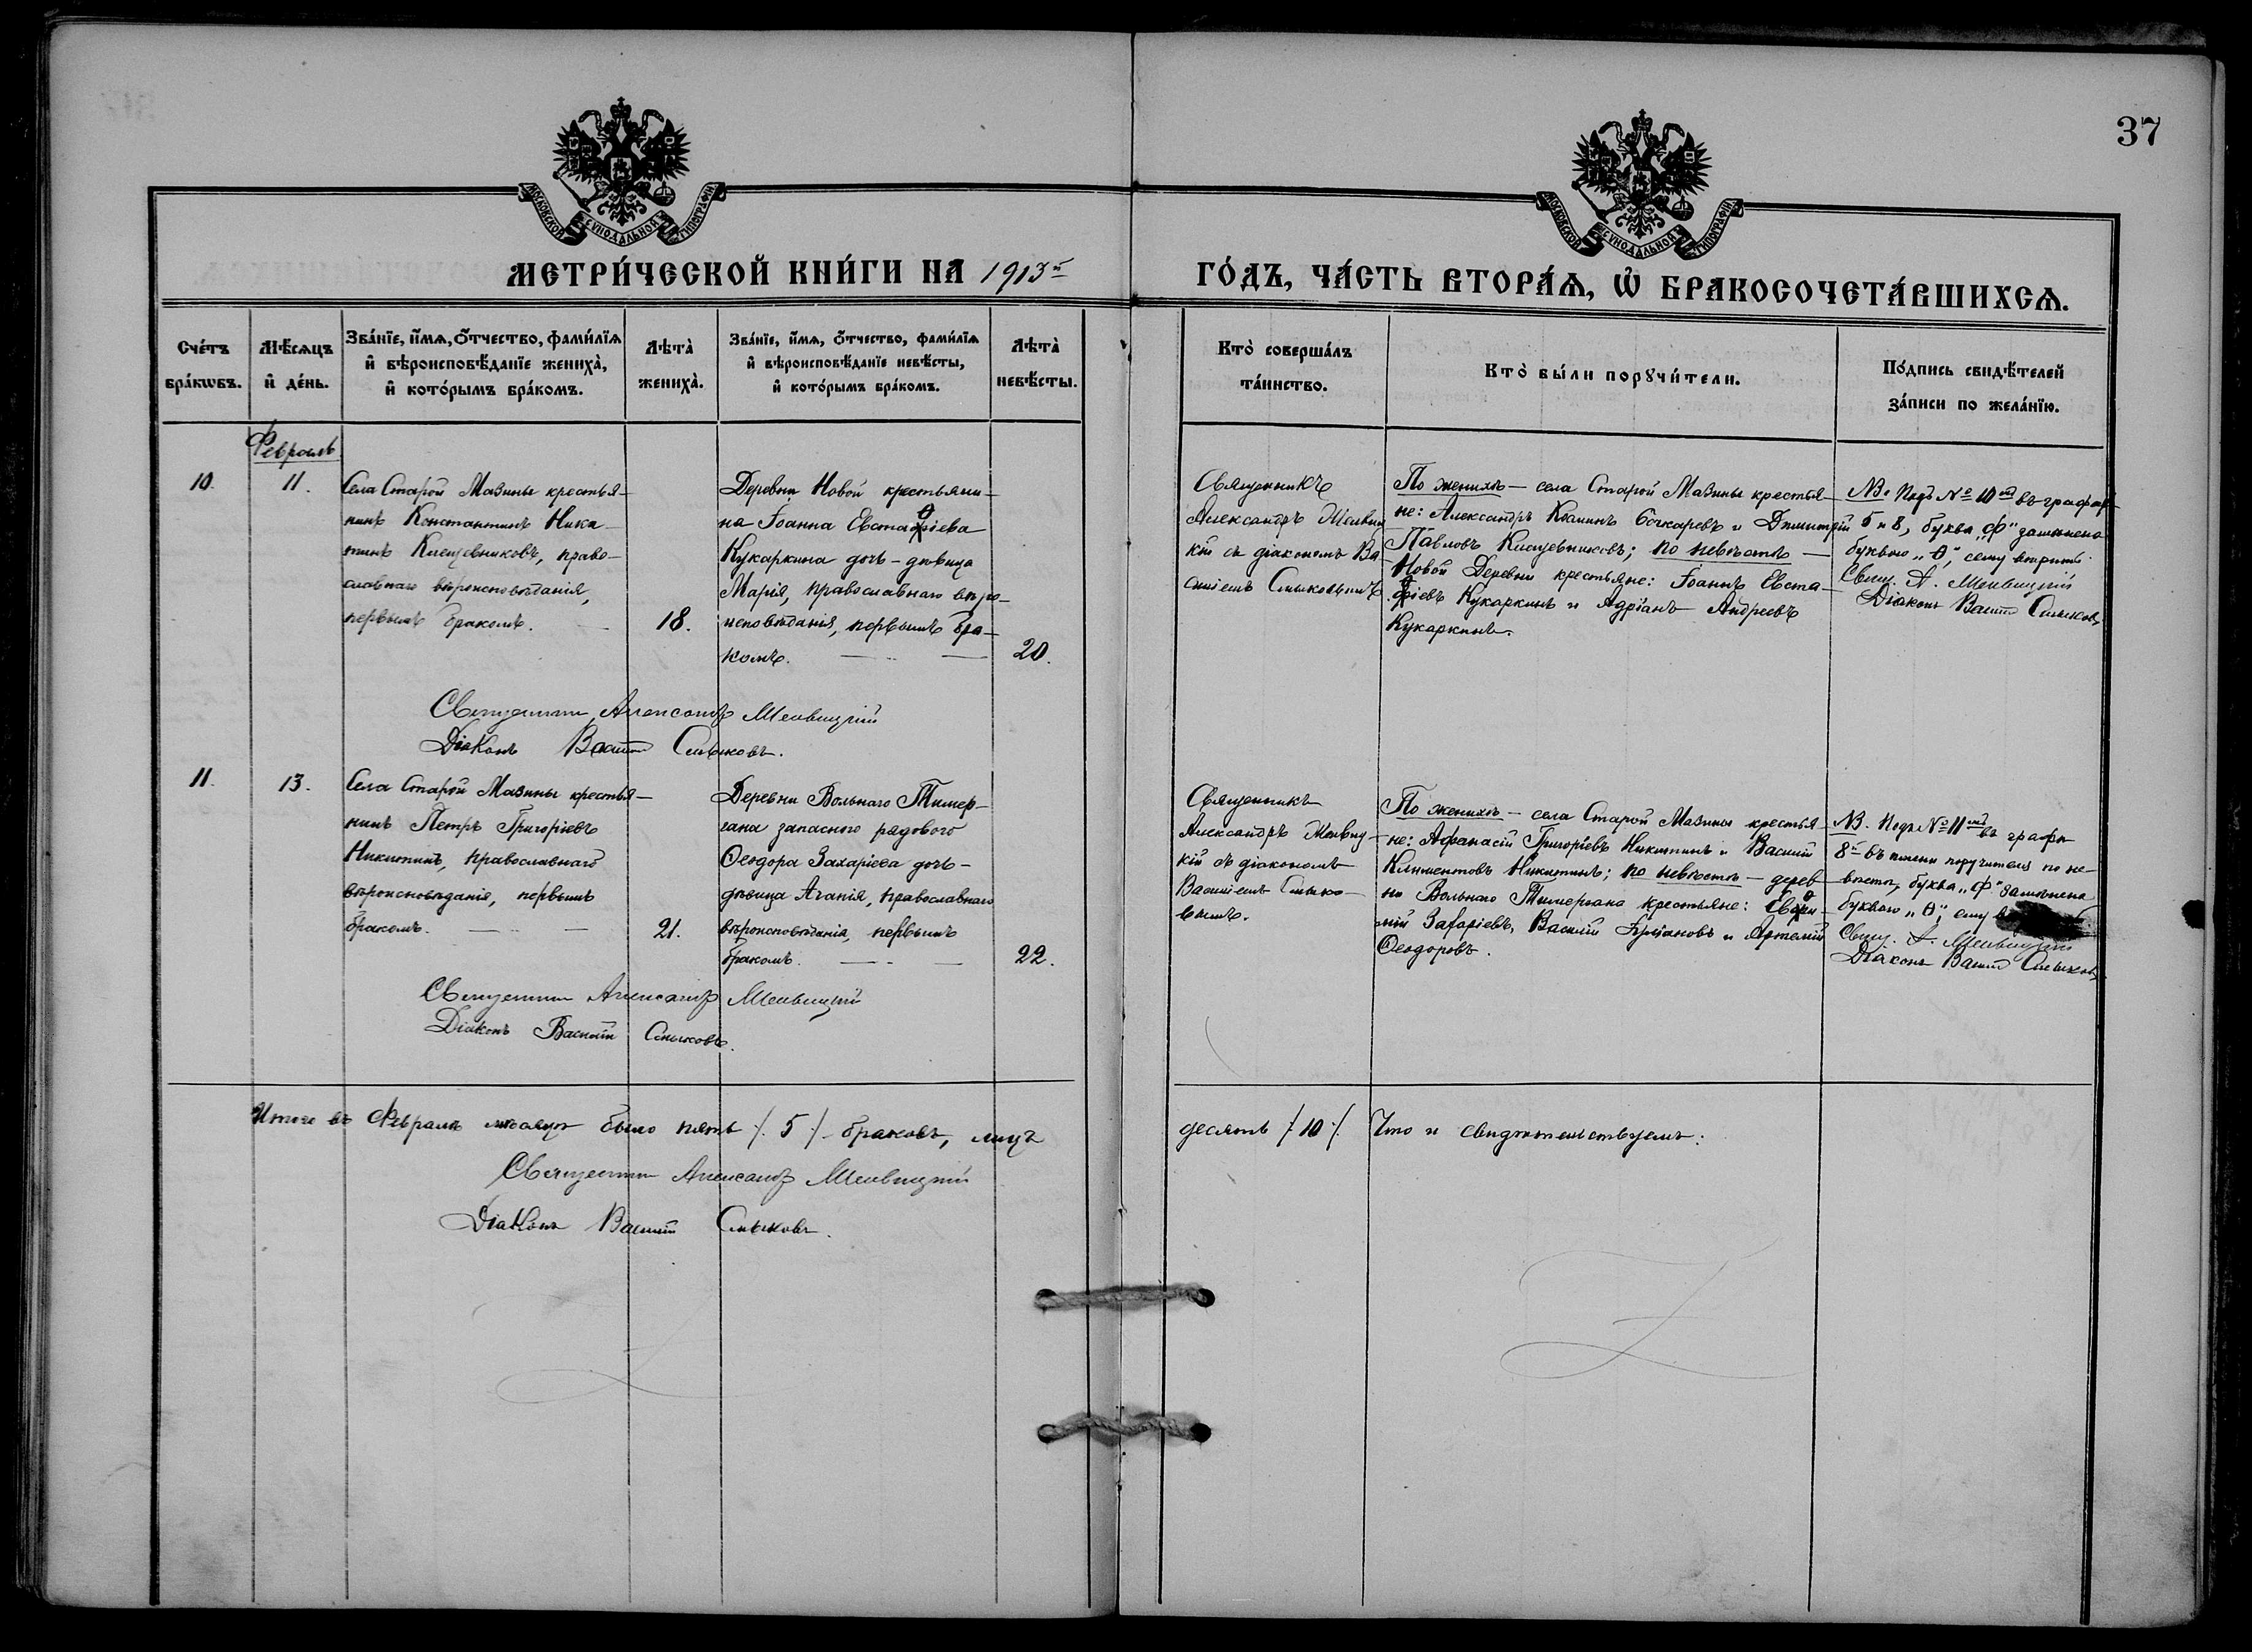 37
МОСКОВСКОЙ СѴНОДАЛЬНОЙ ТИПОГРАФІИ
МОСКОВСКОЙ СѴНОДАЛЬНОЙ ТИПОГРАФІИ
МЕТРИ́ЧЕСКОЙ КНИ́ГИ НА 1913й
ГО́ДЪ, ЧА́СТЬ ВТОРА́Ѧ, Ѽ БРАКОСОЧЕТА́ВШИХСѦ.
Сче́тъ бра́кѡвъ.
Мѣ́сѧцъ и҆ де́нь.
Зва́нїе, и҆́мѧ, ѻ҆́тчество, фами́лїѧ и҆ вѣроисповѣ́данїе жениха̀, и҆ кото́рымъ бра́комъ.
Лѣта̀ жениха̀.
Зва́нїе, и҆́мѧ, ѻ҆́тчество, фами́лїѧ и҆ вѣроисповѣ́данїе невѣ́сты, и҆ кото́рымъ бра́комъ.
Лѣта̀ невѣ́сты.
Кто̀ соверша́лъ та́инство.
Кто̀ бы́ли порꙋчи́тели.
По́дпись свидѣ́телей за́писи по жела́нїю.
Февраль
10.
11.
Села Старой Мазины крестья-
нинъ Константинъ Ники-
тинъ Клещевниковъ, право-
славнаго вѣроисповѣданія,
первымъ бракомъ.
18.
Деревни Новой крестьяни-
на Іоанна Евстаѳіева
Кукаркина дочь - дѣвица
Марія, православнаго вѣро-
исповѣданія, первымъ бра-
комъ.
20.
Священникъ
Александръ
кій съ діакономъ Ва-
силіемъ Смыковымъ.
По женихѣ - села Старой Мазины крестья-
не: Александръ Бочкаревъ и Димитрій
Павловъ Клещевниковъ; по невѣстѣ -
Новой Деревни крестьяне: Іоаннъ Евста-
ѳіевъ Кукаркинъ и Адріанъ Андреевъ
Кукаркинъ.
NB. Подъ № 10мъ въ графахъ
5 и 8, буква „Ф" замѣнена
буквою „Ѳ", сему вѣрить.
Свящ. А.
Діаконъ Василій Смыковъ.
Священникъ Александръ
Діаконъ Василій Смыковъ.
11.
13.
Села Старой Мазины крестья-
нинъ Петръ Григоріевъ
Никитинъ, православнаго
вѣроисповѣданія, первымъ
бракомъ.
21.
Деревни Вольнаго Тимер-
гана запаснаго рядового
Ѳеодора Захаріева дочь -
дѣвица Агапія, православнаго
вѣроисповѣданія, первымъ
бракомъ.
22.
Священникъ
Александръ
кій съ діакономъ
Василіемъ Смыко-
вымъ.
По женихѣ - села Старой Мазины крестья-
не: Афанасій Григоріевъ Никитинъ и Василій
Климентовъ Никитинъ; по невѣстѣ - дерев-
ни Вольнаго Тимергана крестьяне:
мій Захаріевъ, Василій и Артемій
Ѳеодоровъ.
NB. Подъ № 11мъ въ графѣ
8й въ имени поручителя по не-
вѣстѣ, буква „Ф" замѣнена
буквою „Ѳ", сему
Свящ. А.
Діаконъ Василій Смыковъ.
Священникъ Александръ
Діаконъ Василій Смыковъ.
Итого въ Февралѣ мѣсяцѣ было пять /. 5 /. браковъ, лицъ
десять /. 10 /. Что и свидѣтельствуемъ:
Священникъ Александръ
Діаконъ Василій Смыковъ.